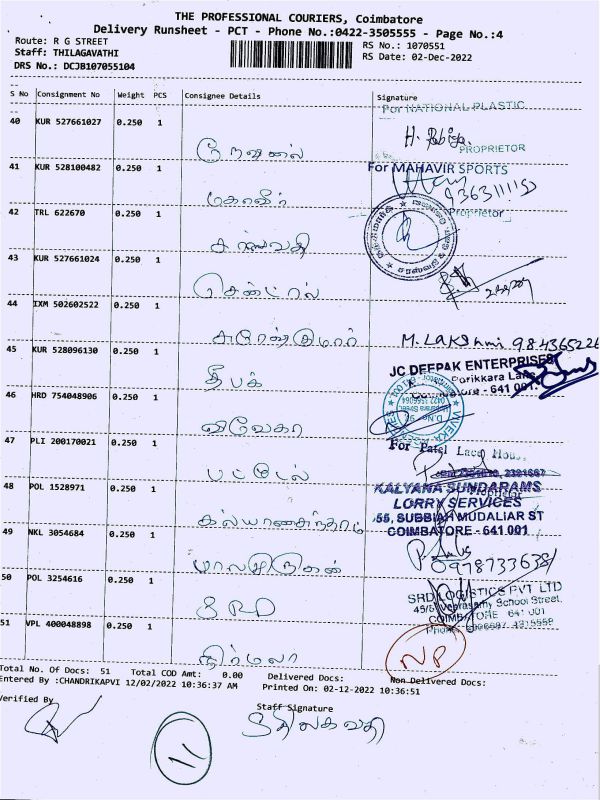 THE PROFESSIONAL COURIERS, Coimbatore
Delivery Runsheet - PCT - Phone No.:0422-3505555 - Page No.:4
Route: R G STREET
RS No.: 1070551
Staff: THILAGAVATHI
RS Date: 02-Dec-2022
DRS No.: DCJB107055104
S No Consignment No Weight PCS Consignee Details Signature
For NATIONAL PLASTIC
40 KUR 527661027 0.250 1
PROPRIETOR
நேஷனல்
41 KUR 528100482 0.250 1 For MAHAVIR SPORTS
மகாவீர்
Proprietor
42 TRL 622670 0.250 1
43 KUR 527661024 0.250 1
சென்ட்ரல்
44 IXM 502602522 0.250 1
சுரேஷ்குமார் M. Lakshmi 984365226
45 KUR 528096130 0.250 1 JC DEEPAK ENTERPRISES
தீபக் Porikkara Lane
Coimbatore - 641 001.
46 HRD 754048906 0.250 1
விவேகா
For Patel Lace House
47 PLI 200170021 0.250 1
பட்டேல்
48 POL 1528971 0.250 1 KALYANA SUNDARAMS
LORRY SERVICES
கல்யாணசுந்தரம் 55, SUBBIAH MUDALIAR ST
COIMBATORE - 641 001
49 NKL 3054684 0.250 1
பாலமுருகன் 0978733638
50 POL 3254616 0.250 1 SRD LOGISTICS PVT LTD
SRD Veerasamy School Street,
COIMBATORE 641 001
51 VPL 400048898 0.250 1
நிர்மலா NP
Total No. Of Docs: 51 Total COD Amt: 0.00 Delivered Docs: Non Delivered Docs:
Entered By :CHANDRIKAPVI 12/02/2022 10:36:37 AM Printed On: 02-12-2022 10:36:51
Verified By
Staff Signature
11